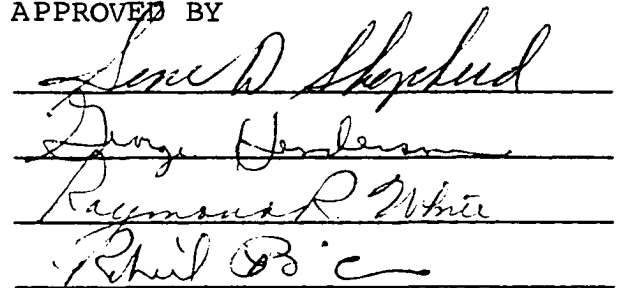 APPROVED BY
Gene D Shepherd
George Henderson
Raymond R. White